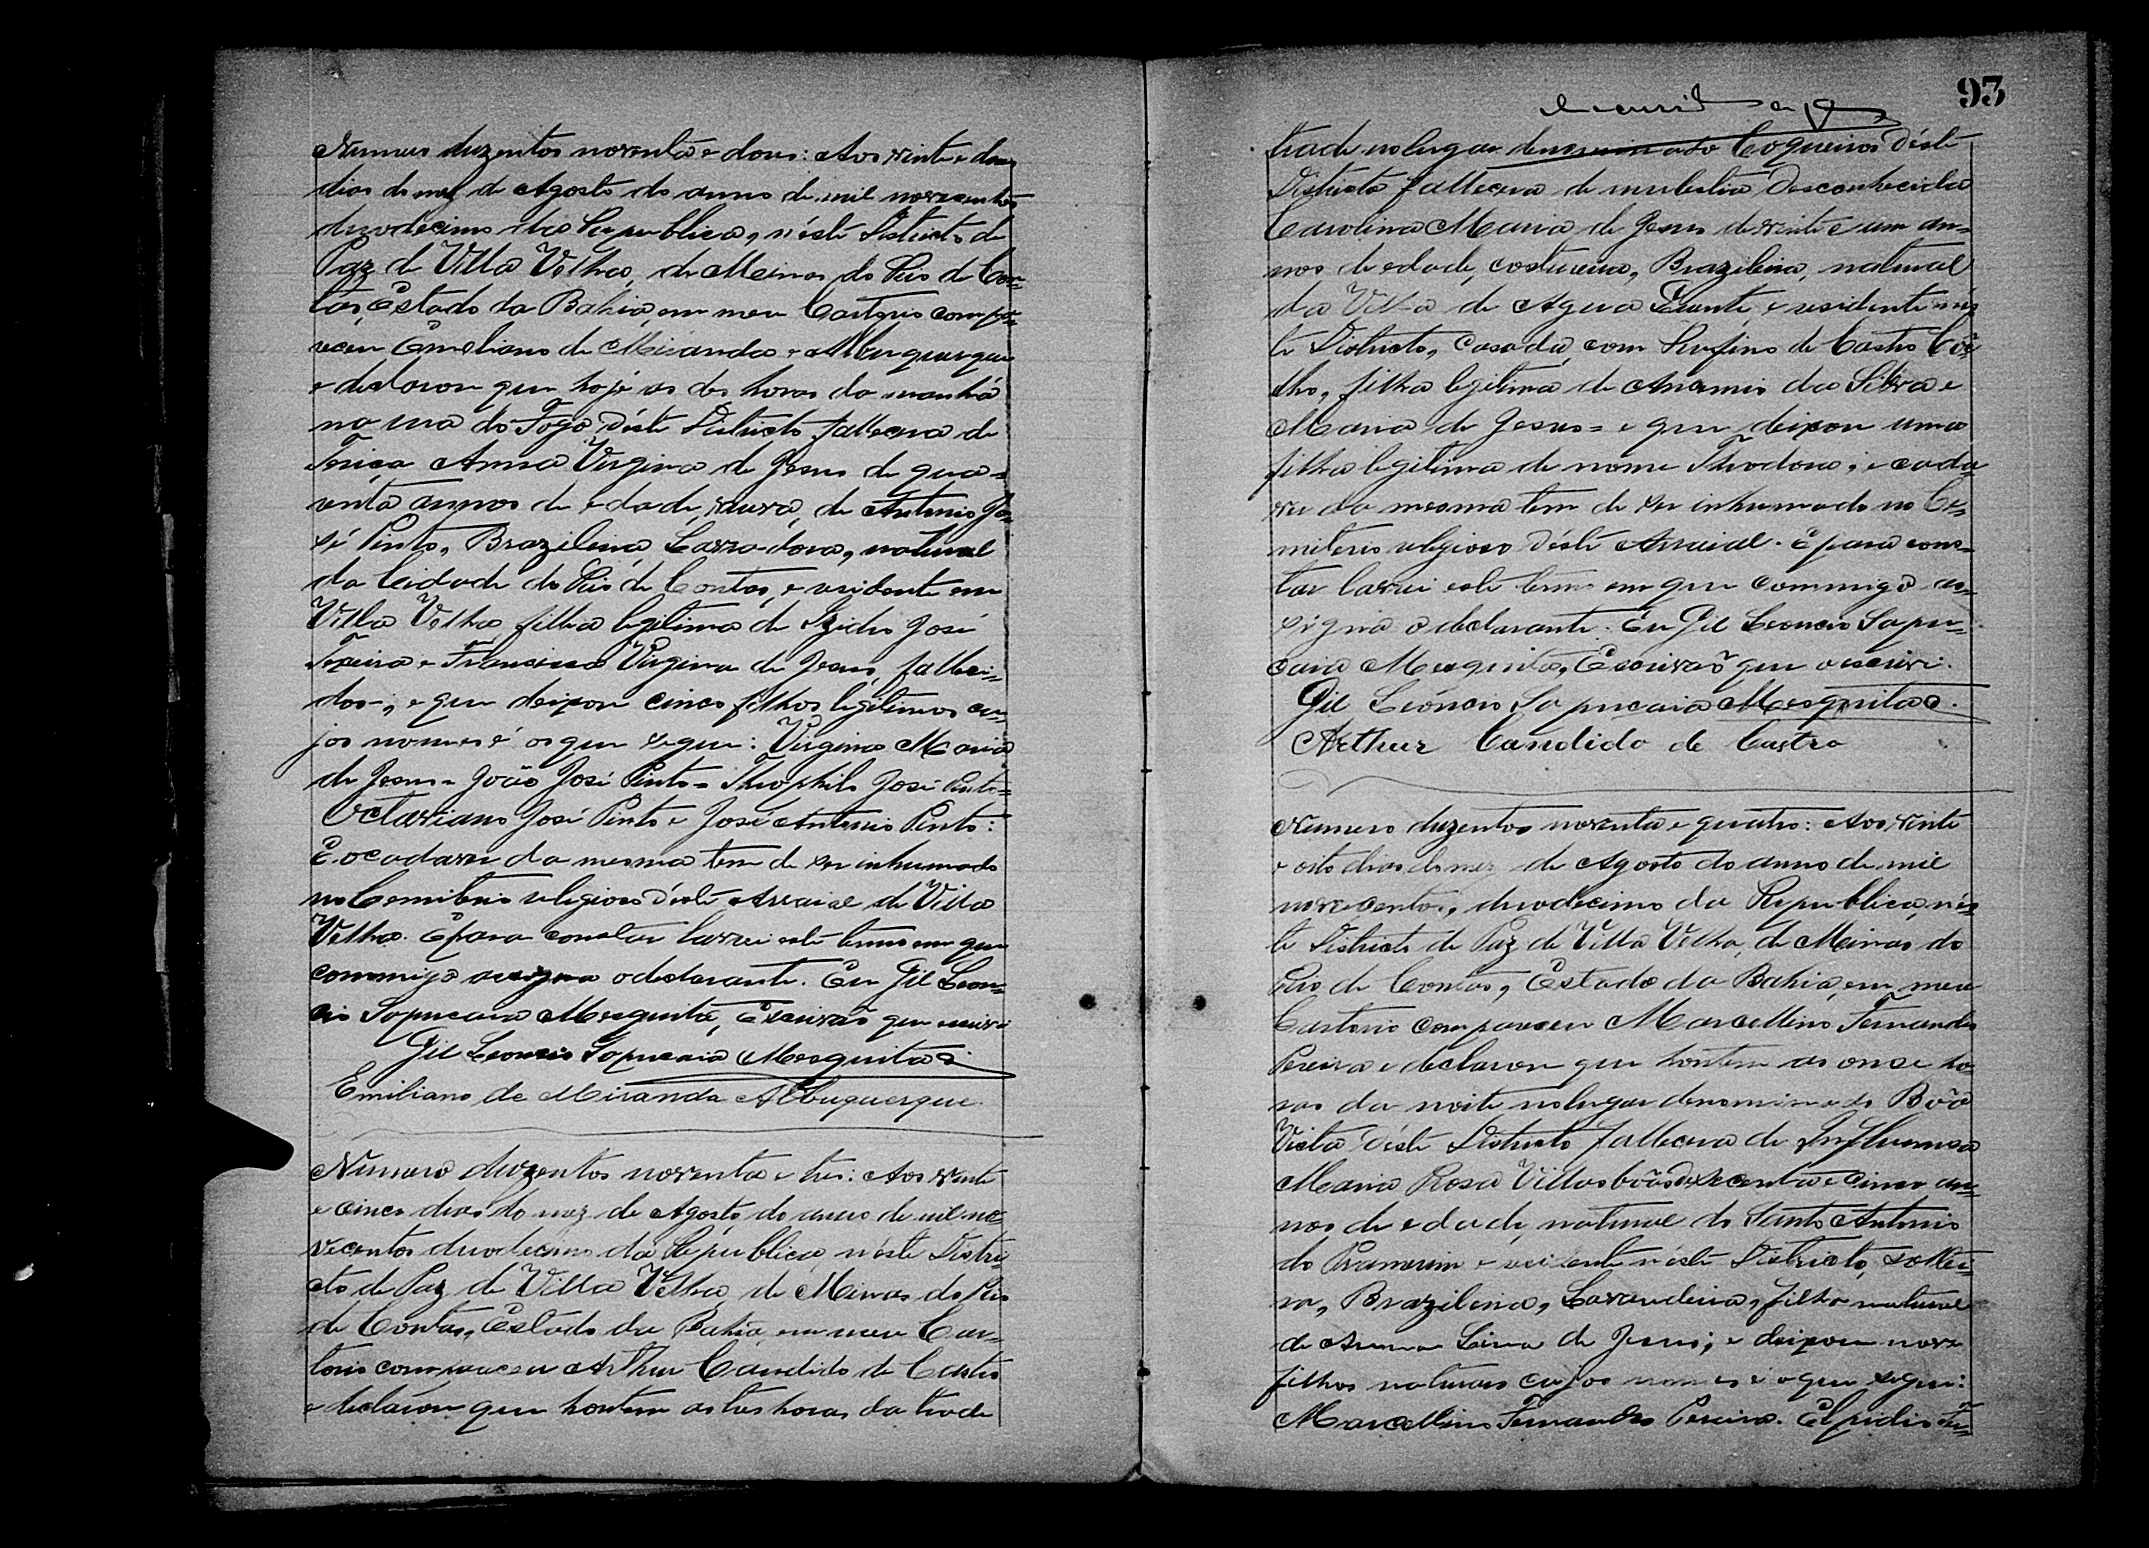 Numero duzentos noventa e dous: Aos vinte e dous
dias do mez de Agosto do anno de mil novecentos
duodecimo da Republica, n'éste Districto de
Paz de Villa Velha, de Minas do Rio de Con=
tas, Estado da Bahia, em meu Cartorio compa=
receu Emeliano de Miranda e Albuquerque
e declarou que hoje as dez horas da manhã
na rua do Fogo d'éste Districto fallecera de
Anna Virginia de Jesus de qua=
renta annos de edade, viuva, de Antonio Jo=
sé Pinto, Brazileira, Lavradora, natural
da Cidade do Rio de Contas, e residente em
Villa Velha filha legitima de Izidro José
Teixeira e Francisca Virginia de Jesus, falleci=
dos-, e que deixou cinco filhos legitimos cu=
jos nomes é os que segue: Virginia Maria
de Jesus= João José Pinto= Theophilo José Pinto=
Octaviano José Pinto e José Antonio Pinto:
E o cadaver da mesma tem de ser inhumado
no Cemiterio religioso d'éste Arraial de Villa
Velha. E para constar lavrei este termo em que
commigo assigna o declarante. Eu Gil Leon=
cio Sapucaia Mesquita, Escrivão que escrevi
Gil Leoncio Sapucaia Mesquita
Emiliano de Miranda Albuquerque
Numero duzentos noventa e tres: Aos vinte
e cinco dias do mez de Agosto do anno de mil no=
vecentos duodecimo da Republica, n'éste Distri=
cto de Paz de Villa Velha de Minas do Rio
de Contas, Estado da Bahia em meu Car=
torio compareceu Arthur Candido de Castro
e declarou que hontem as tres horas da tarde
93
tarde no lugar denominado Coqueiros d'éste
Districto fallecera de molestia desconhecida
Carolina Maria de Jesus de vinte e um an=
nos de edade, costureira, Brazileira, natural
da Villa de Agua Quente, e residente n'es
te Districto, casada com Rufino de Castro Coe
lho, filha legitima de da Silva e
Maria de Jesus= e que deixou uma
filha legitima de nome Theodora; e cada=
ver da mesma tem de ser inhumado no Ce=
miterio religioso d'éste Arraial. E para cons=
tar lavrei este termo em que commigo as=
signa o declarante. Eu Gil Leoncio Sapu=
caia Mesquita, Escrivão que o escrevi.
Gil Leoncio Sapucaia Mesquita
Arthur Candido de Castro
Numero duzentos noventa e quatro: Aos vinte
e oito dias do mez de Agosto do anno de mil
novecentos, duodecimo da Republica, n'és
te Districto de Paz de Villa Velha, de Minas do
Rio de Contas, Estado da Bahia, em meu
Cartorio compareceu Marcellino Fernandes
Pereira e declarou que hontem as onse ho=
ras da noite, no lugar denominado Bôa
Vista d'éste Districto fallecera de Influensa
Maria Rosa Villasbôas de secenta e cinco an=
nos de edade, natural do Santo Antonio
do Paramerim e residente n'éste Districto, soltei=
ra, Brazileira, Lavandeira, filha natural
de Anna Lina de Jesus; e deixou nove
filhos naturaes cujos nomes é o que segue:
Marcellino Fernandes Pereira. Elpidio Fer=